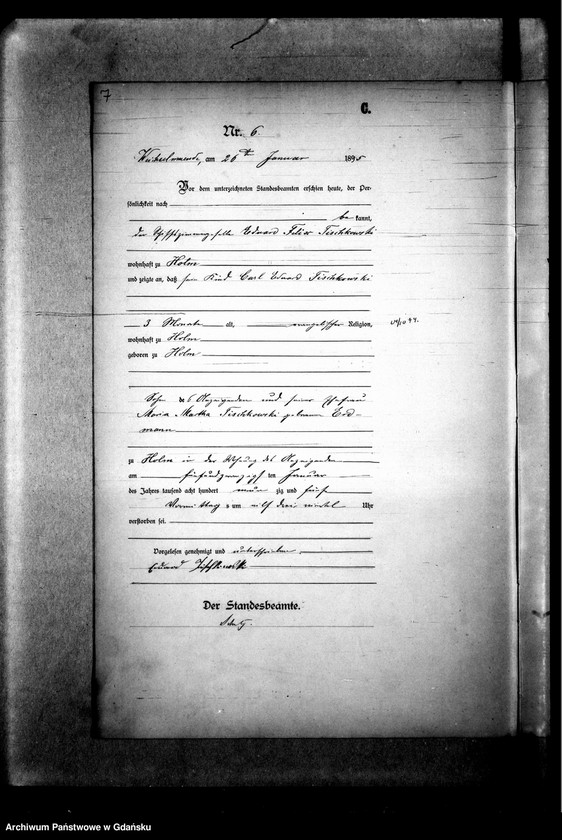 7
C.
Nr. 6.
Weichselmünde, am 26ten Januar 1895
Vor dem unterzeichneten Standesbeamten erschien heute, der Per-
sönlichkeit nach
be kannt,
der Schiffszimmergeselle Eduard Felix Tischkowski
wohnhaft zu Holm
und zeigte an, daß sein Kind Carl Eduard Tischkowski
3 Monate alt, evangelischer Religion,
wohnhaft zu Holm
geboren zu Holm
Sohn des Anzeigenden und seiner Ehefrau
Maria Martha Tischkowski geborene Erd-
mann
zu Holm in der Wohnung des Anzeigenden
am fünfundzwanzigsten Januar
des Jahres tausend acht hundert neunzig und fünf
Vormittags um elf drei viertel Uhr
verstorben sei.
Vorgelesen genehmigt und unterschrieben
Eduard Tischkowski
Der Standesbeamte.
Archiwum Państwowe w Gdańsku